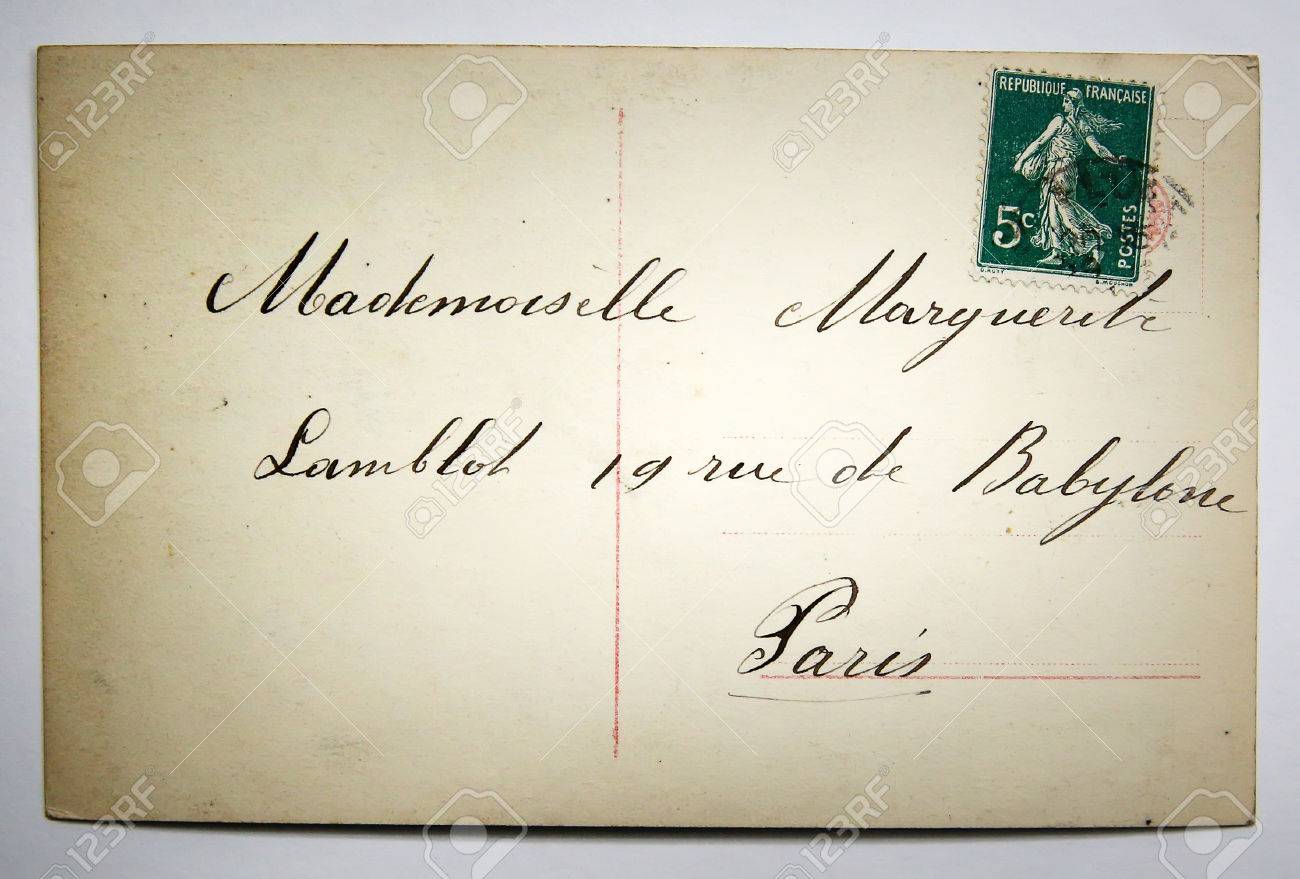 REPUBLIQUE FRANÇAISE
5c.
POSTES
O.ROTY E.MOUCHON
Mademoiselle Marguerite
Lamblot 19 rue de Babylone
Paris
123RF